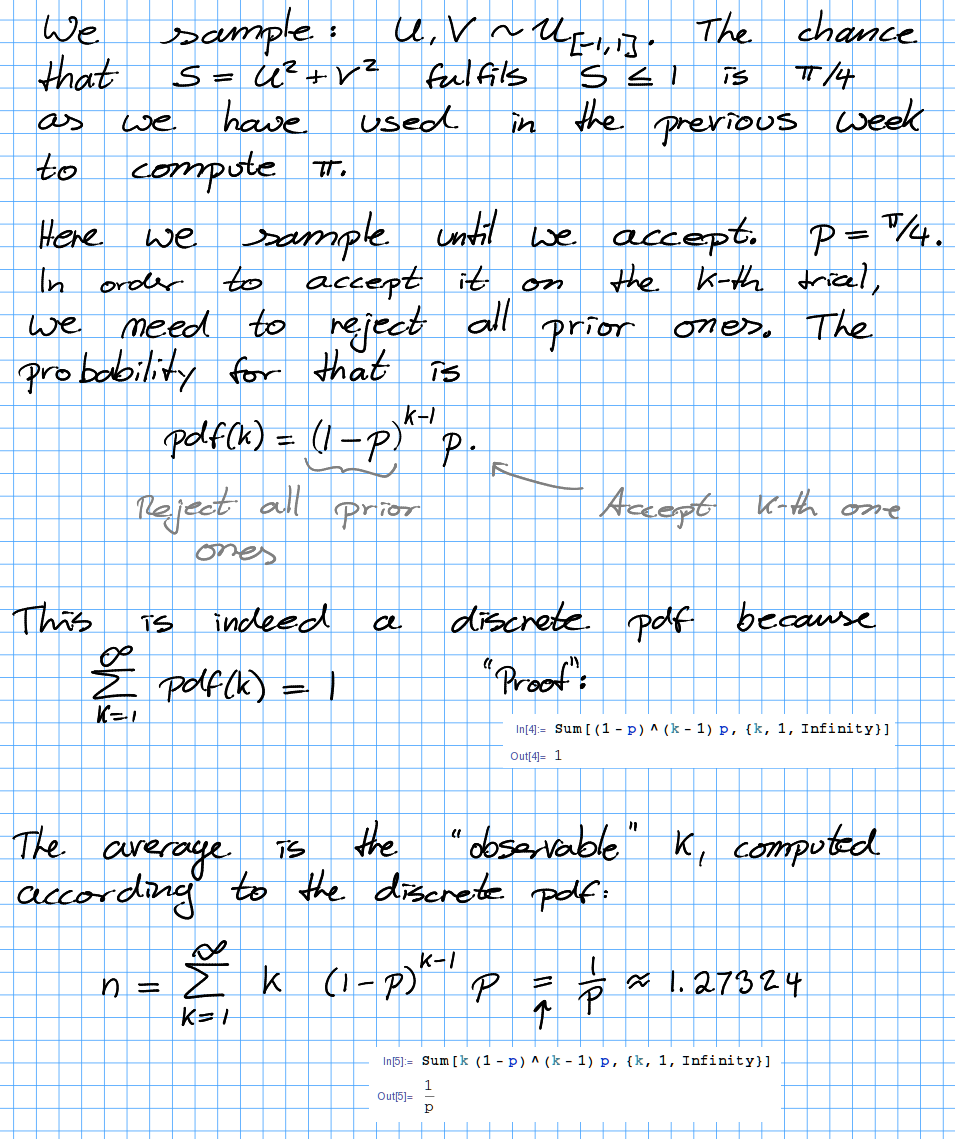 We sample: U, V ~ U[-1,1]. The chance
that S = U² + V² fulfils S ≤ 1 is π/4
as we have used in the previous week
to compute π.
Here we sample until we accept. p = π/4.
In order to accept it on the k-th trial,
we need to reject all prior ones. The
probability for that is
pdf(k) = (1-p)^(k-1) p.
Reject all prior
ones
Accept k-th one
This is indeed a discrete pdf because
∑_{k=1}^{∞} pdf(k) = 1 "Proof":
In[4]:= Sum[(1 - p) ^ (k - 1) p, {k, 1, Infinity}]
Out[4]= 1
The average is the "observable" k, computed
according to the discrete pdf:
n = ∑_{k=1}^{∞} k (1-p)^(k-1) p = 1/p ≈ 1.27324
↑
In[5]:= Sum[k (1 - p) ^ (k - 1) p, {k, 1, Infinity}]
Out[5]= 1/p